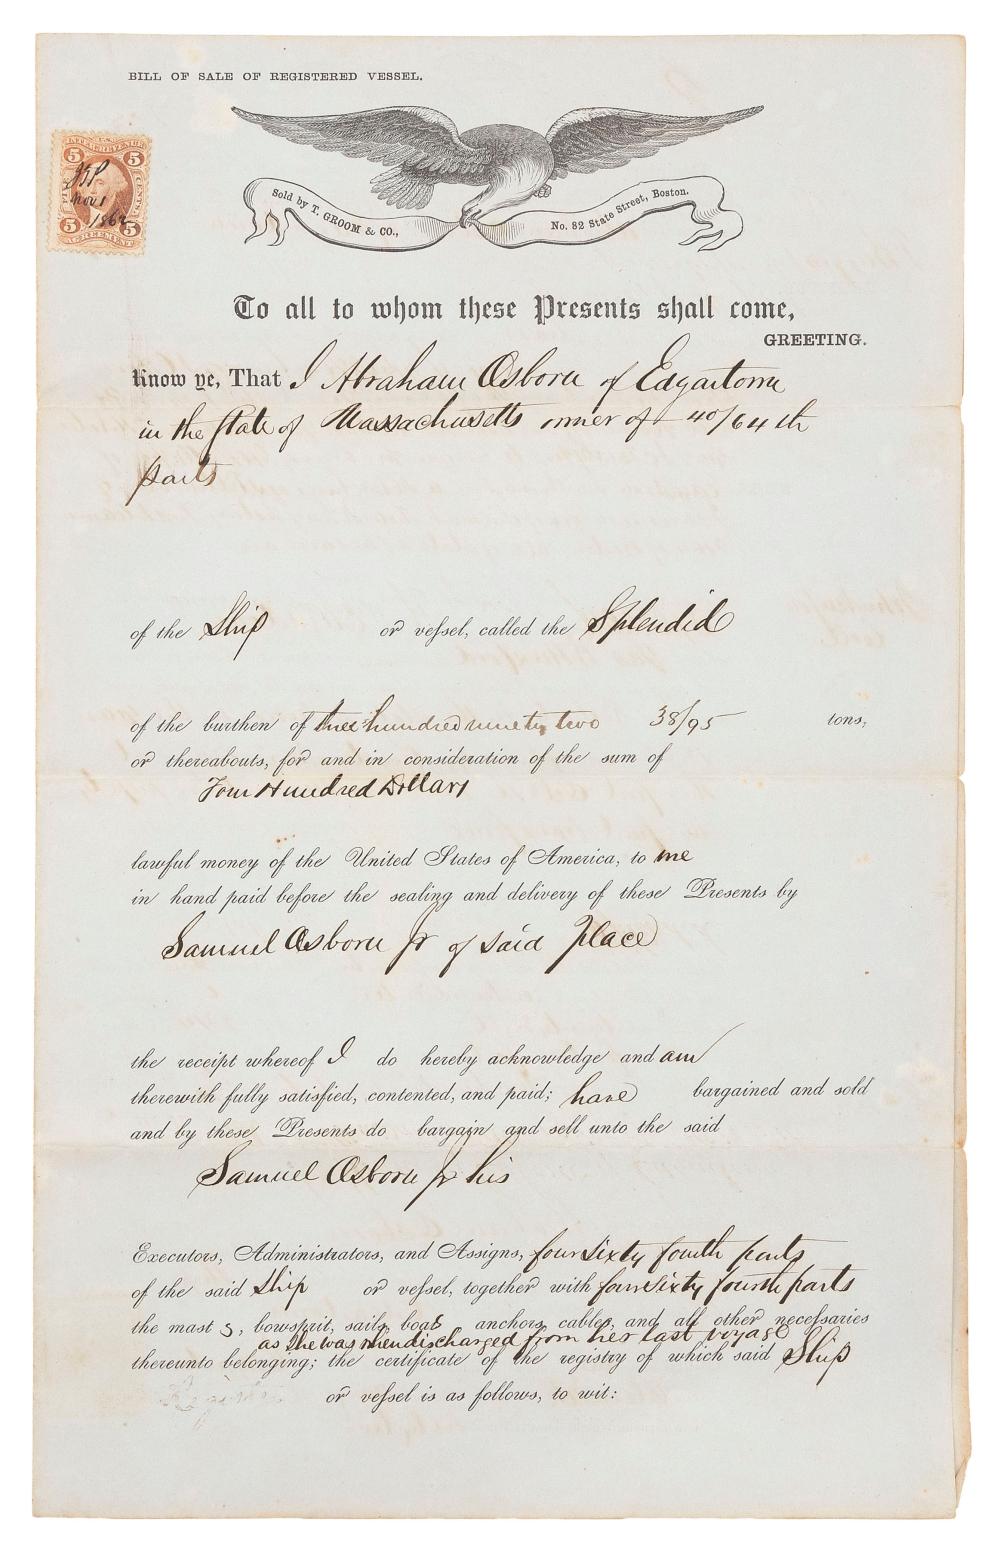 BILL OF SALE OF REGISTERED VESSEL.
U.S. INTER. REVENUE
5 5
FIVE CENTS
JBP
Nov 1
1862
5 5
AGREEMENT
Sold by T. GROOM & CO., No. 82 State Street, Boston.
To all to whom these Presents shall come,
GREETING.
Know ye, That I Abraham Osborn of Edgartown
in the State of Massachusetts owner of 40/64th
parts
of the Ship or vessel, called the Splendid
of the burthen of three hundred ninety two 38/95 tons,
or thereabouts, for and in consideration of the sum of
Four Hundred Dollars
lawful money of the United States of America, to me
in hand paid before the sealing and delivery of these Presents by
Samuel Osborn Jr of said Place
the receipt whereof I do hereby acknowledge and am
therewith fully satisfied, contented, and paid; have bargained and sold
and by these Presents do bargain and sell unto the said
Samuel Osborn Jr his
Executors, Administrators, and Assigns, four sixty fourth parts
of the said Ship or vessel, together with four sixty fourth parts
the mast s, bowsprit, sails, boats anchors, cables, and all other necessaries
as she was when discharged from her last voyage
thereunto belonging; the certificate of the registry of which said Ship
or vessel is as follows, to wit: